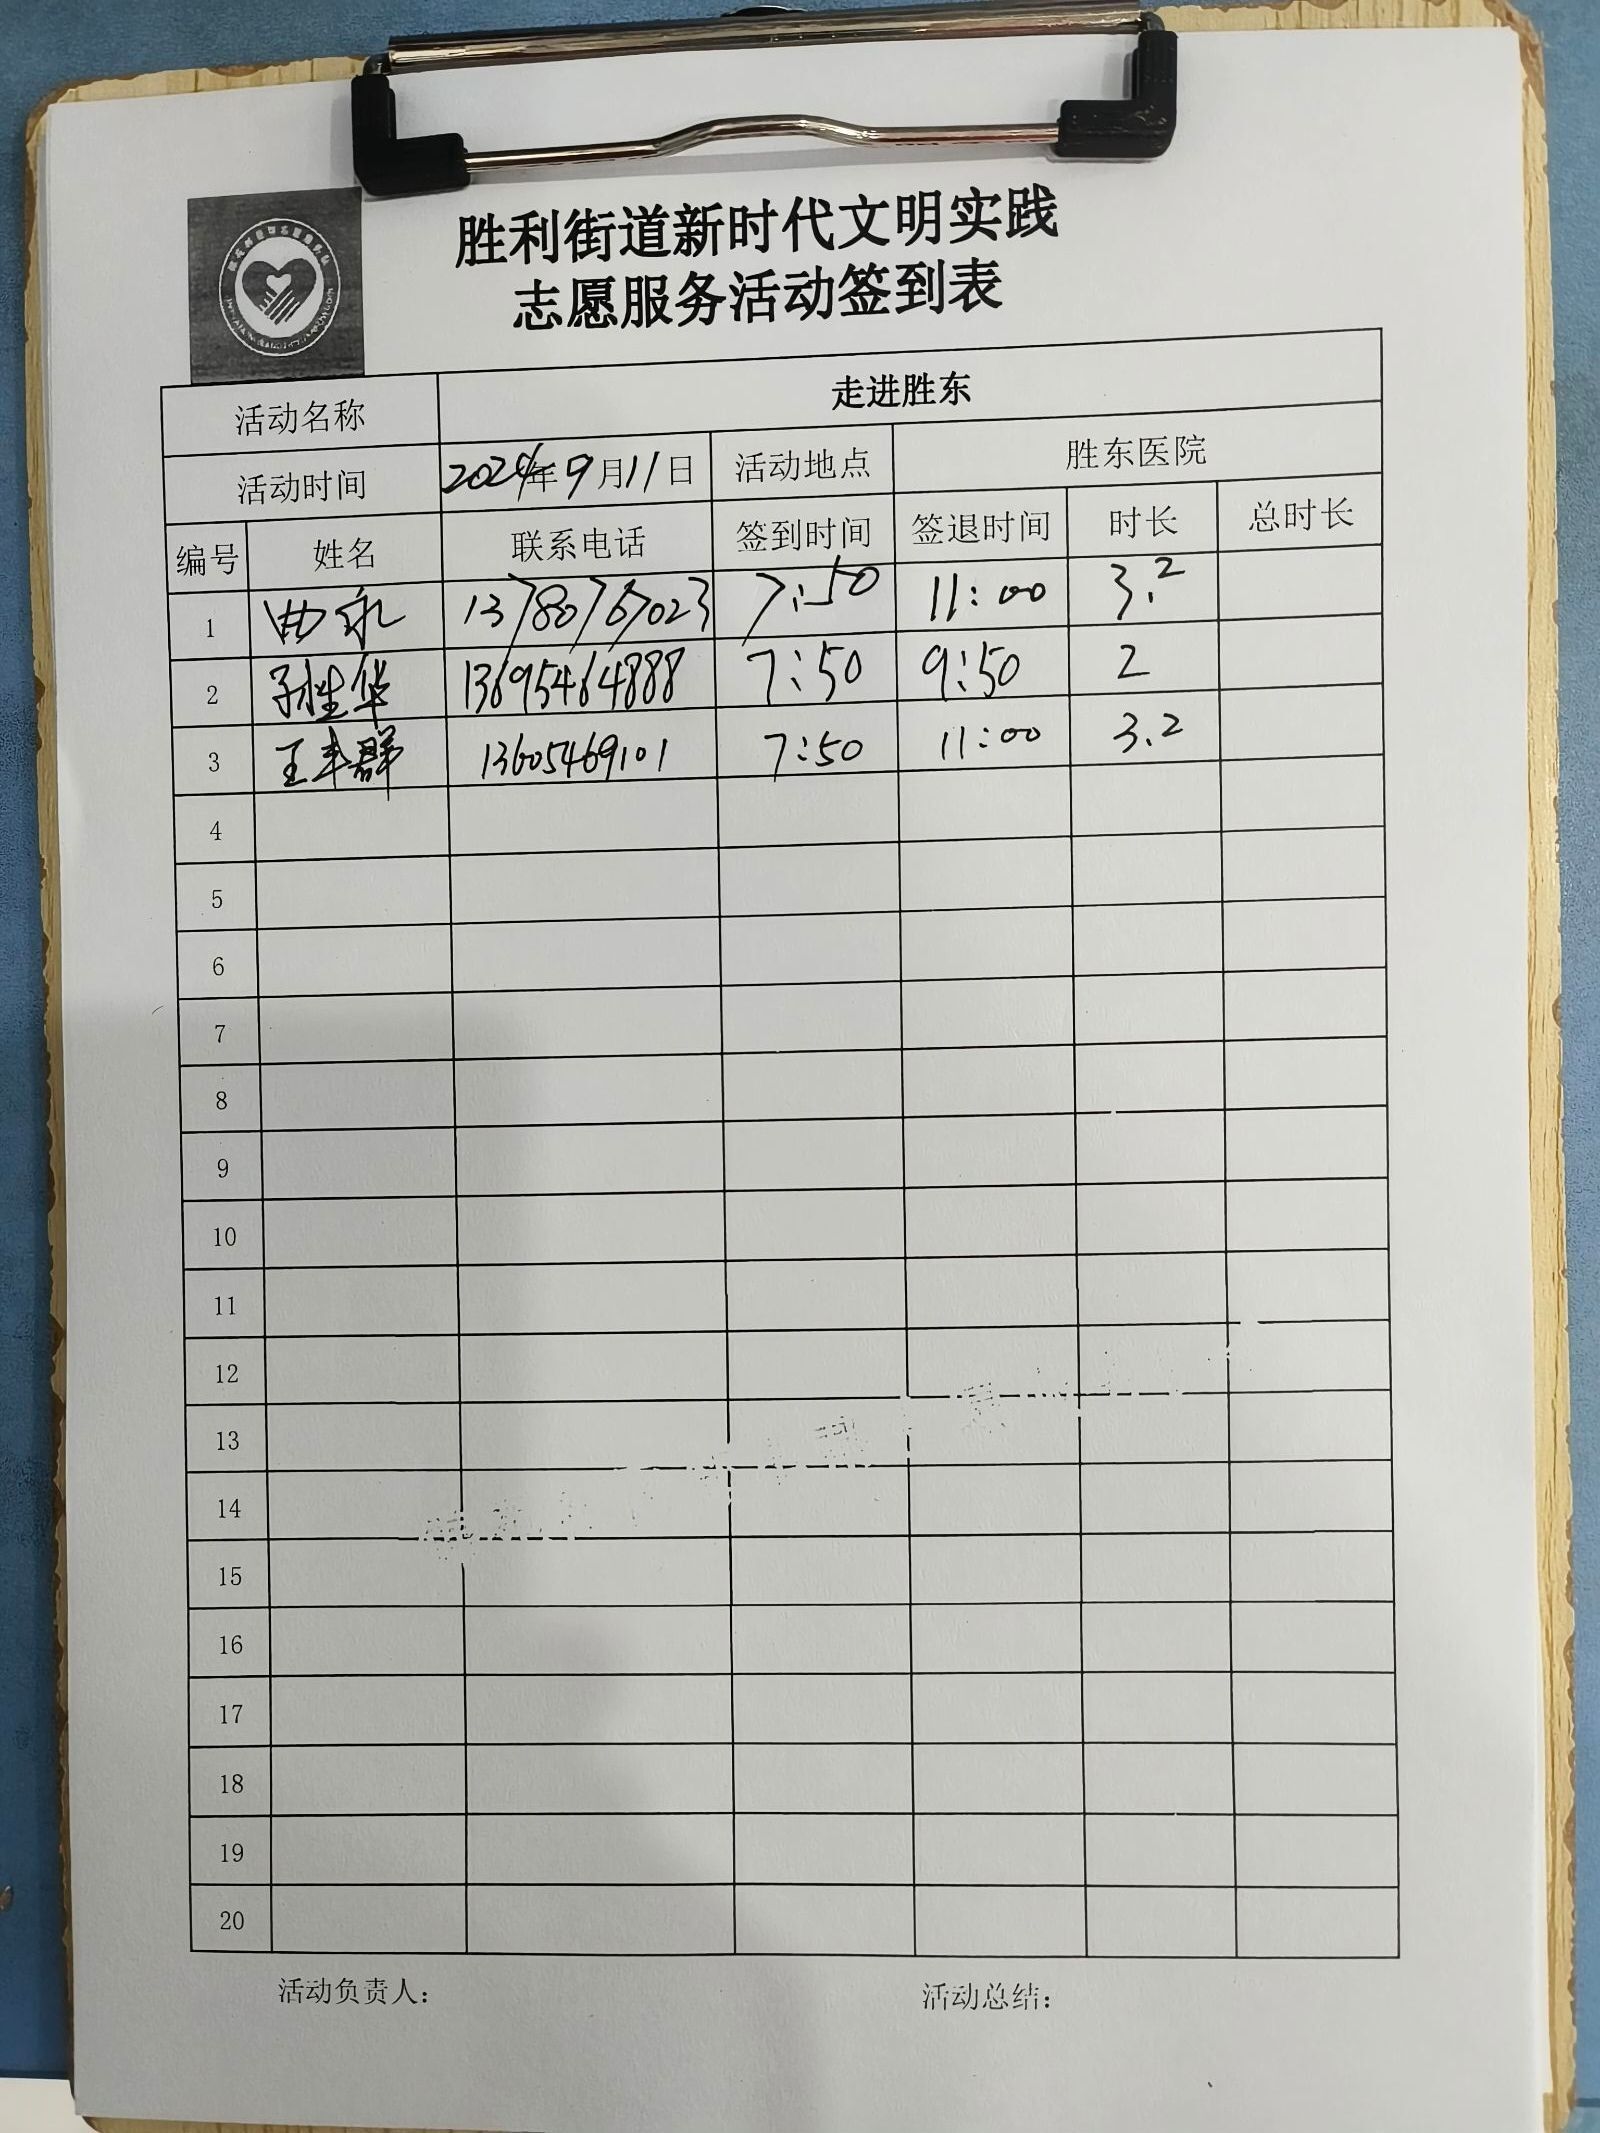 胜利街道新时代文明实践
志愿服务活动签到表
活动名称 走进胜东
活动时间 2024年9月11日 活动地点 胜东医院
编号 姓名 联系电话 签到时间 签退时间 时长 总时长
1 曲永 13780767023 7:50 11:00 3.2
2 孙胜华 13695464888 7:50 9:50 2
3 王丰群 13605469101 7:50 11:00 3.2
4
5
6
7
8
9
10
11
12
13
14
15
16
17
18
19
20
活动负责人： 活动总结：